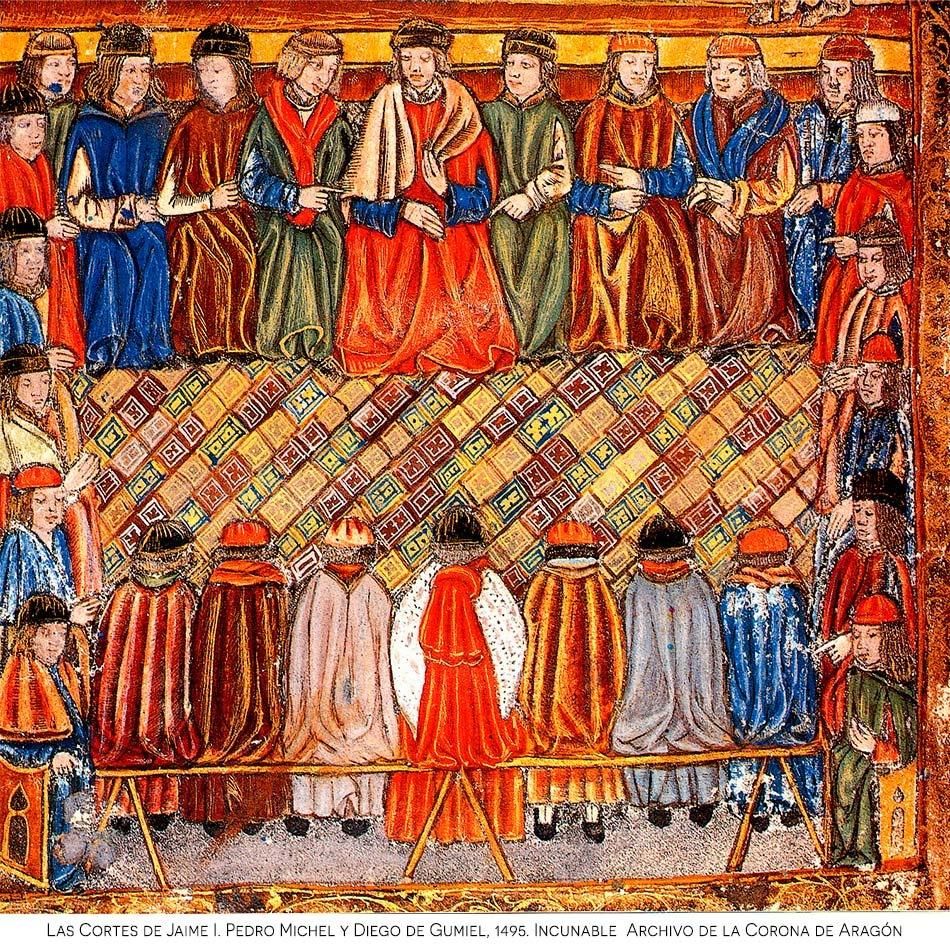 Las Cortes de Jaime I. Pedro Michel y Diego de Gumiel, 1495. Incunable Archivo de la Corona de Aragón